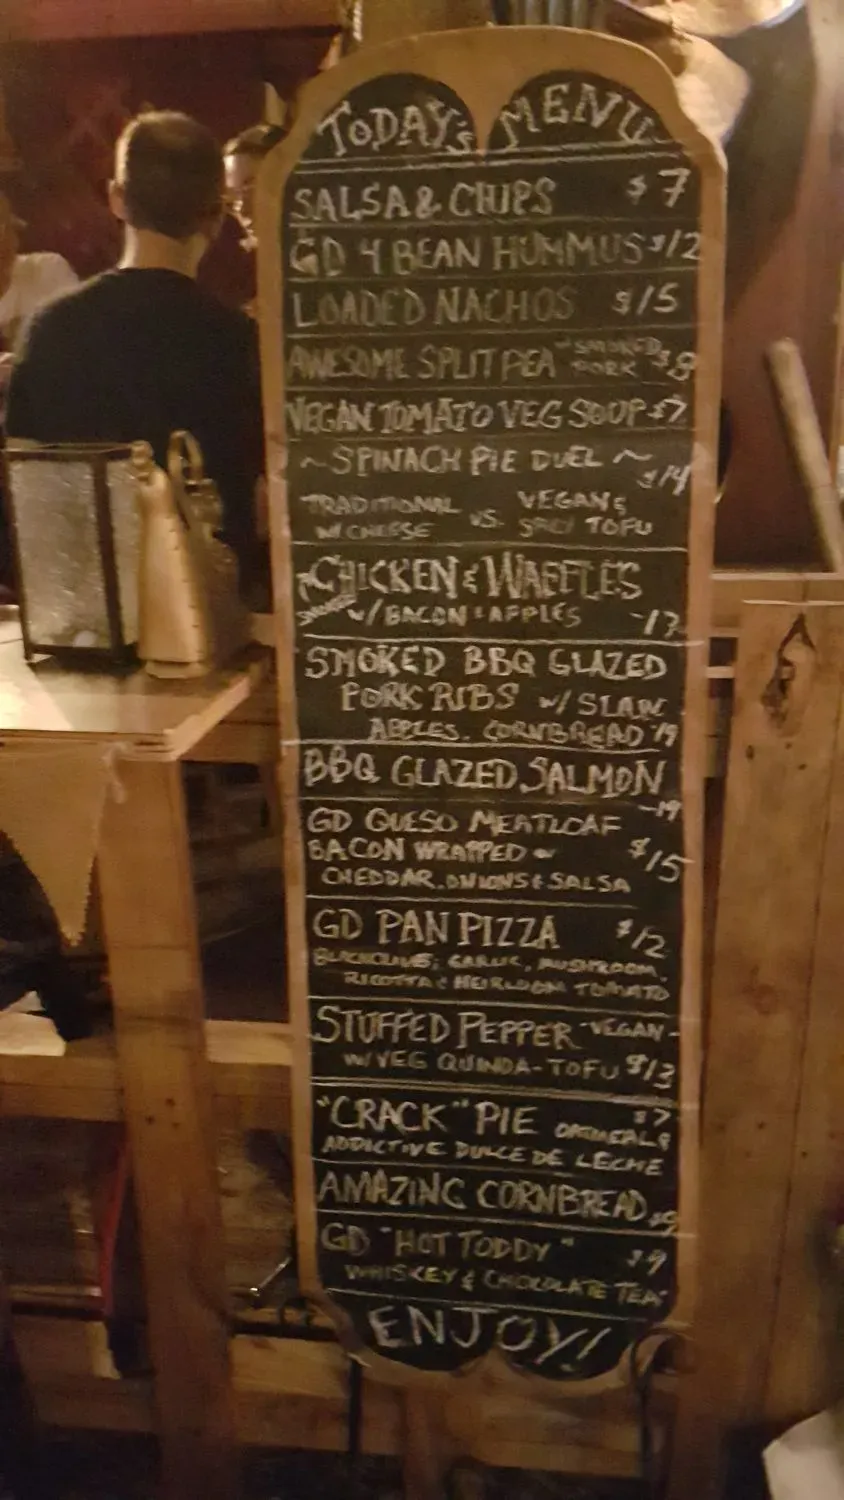 TODAY'S MENU
SALSA & CHIPS $7
GD 4 BEAN HUMMUS $12
LOADED NACHOS $15
AWESOME SPLIT PEA SMOKED PORK $8
VEGAN TOMATO VEG SOUP $7
~SPINACH PIE DUEL~ $14
TRADITIONAL W/ CHEESE VS. VEGAN & TOFU
CHICKEN & WAFFLES
W/ BACON & APPLES -17-
SMOKED BBQ GLAZED
PORK RIBS W/ SLAW
APPLES. CORNBREAD 19
BBQ GLAZED SALMON
-19
GD QUESO MEATLOAF
BACON WRAPPED $15
CHEDDAR, ONIONS & SALSA
GD PAN PIZZA $12
GARLIC, MUSHROOM,
RICOTTA & HEIRLOOM TOMATO
STUFFED PEPPER -VEGAN-
W/ VEG QUINOA-TOFU $13
"CRACK" PIE $7
OATMEAL &
ADDICTIVE DULCE DE LECHE
AMAZING CORNBREAD
GD "HOT TODDY" $9
WHISKEY & CHOCOLATE TEA
ENJOY!